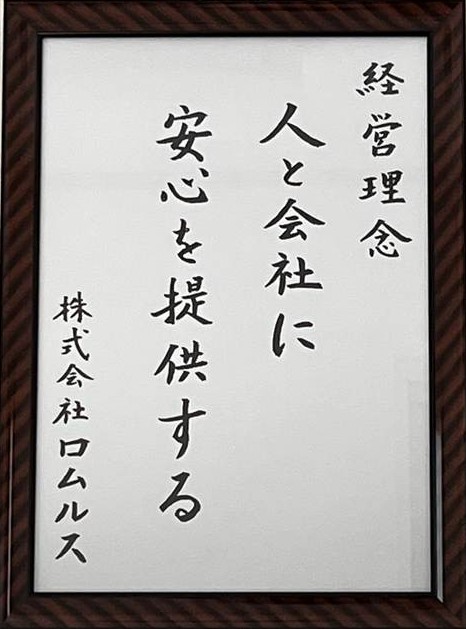 経営理念
人と会社に
安心を提供する
株式会社ロムルス